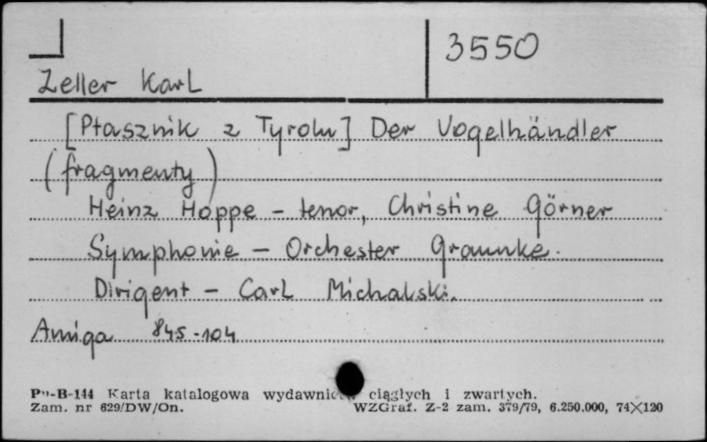 3550
Zeller Karl
[Ptasznik z Tyrolu] Der Vogelhändler
(fragmenty)
Heinz Hoppe - tenor, Christine Görner
Symphonie - Orchester Graunke.
Dirigent - Carl Michalski.
Amiga 845-104
Pu-B-144 Karta katalogowa wydawnictw ciągłych i zwartych.
Zam. nr 629/DW/On. WZGraf. Z-2 zam. 379/79, 6.250.000, 74X120